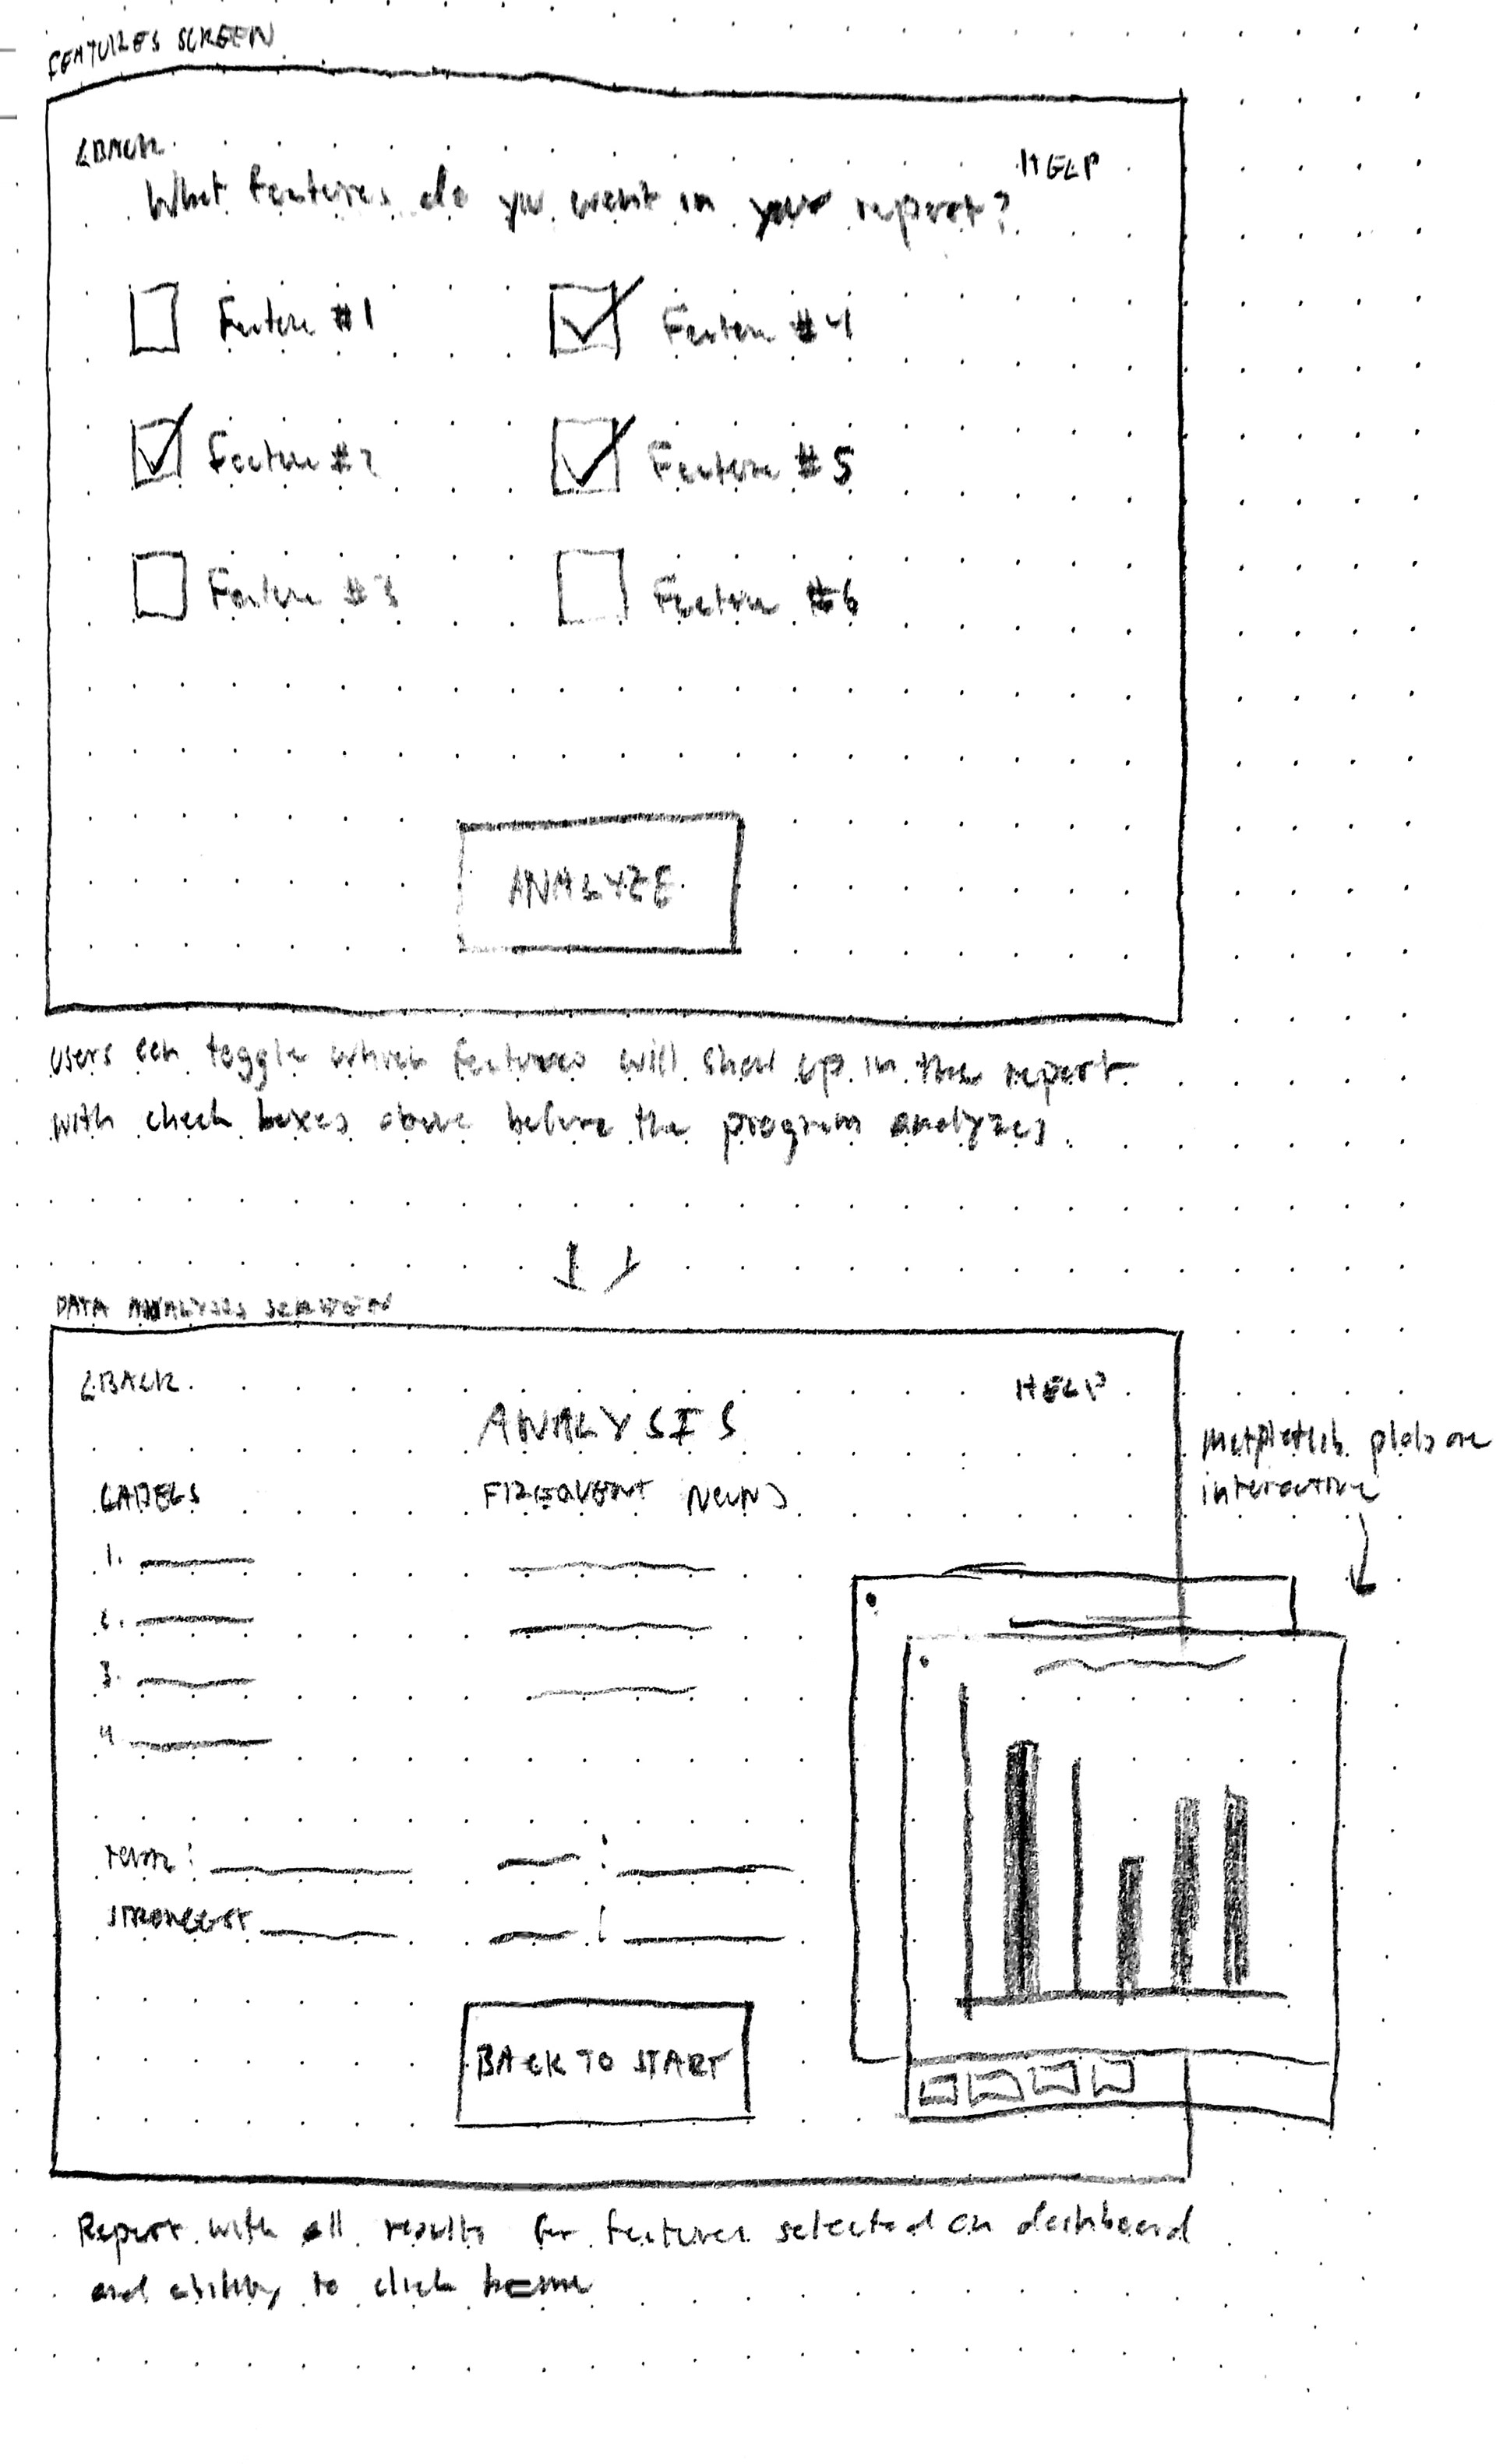 FEATURES SCREEN
<BACK
HELP
What features do you want in your report?
Feature #1
Feature #4
Feature #2
Feature #5
Feature #3
Feature #6
ANALYZE
Users can toggle which features will show up in the report
with check boxes above before the program analyzes.
DATA ANALYSIS SCREEN
<BACK
HELP
ANALYSIS
Matplotlib plots are
interactive
LABELS
FREQUENT NOUNS
1.
2.
3.
4
:
STRONGEST
BACK TO START
Report with all results for features selected on dashboard
and ability to click home